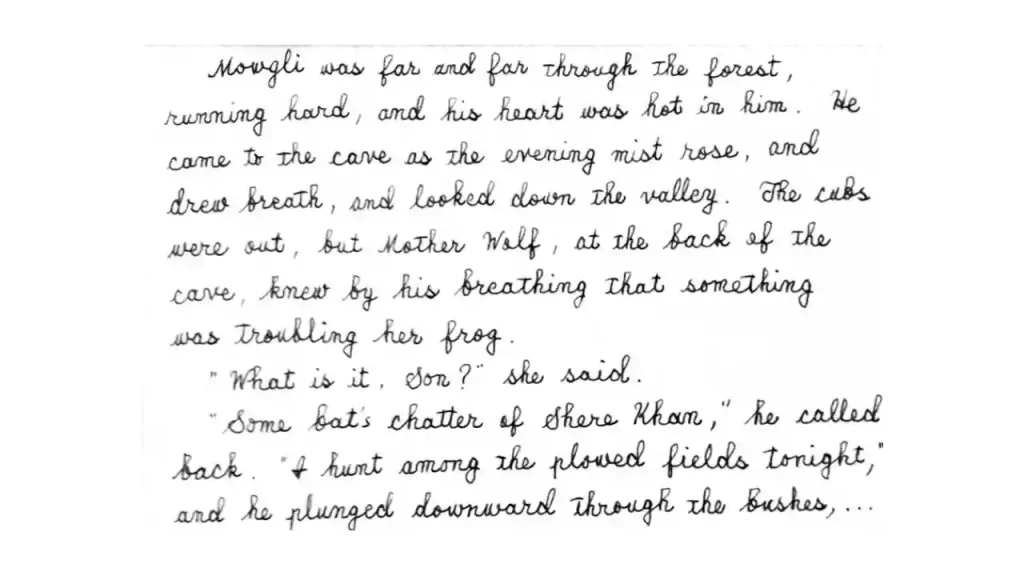 Mowgli was far and far through the forest,
running hard, and his heart was hot in him. He
came to the cave as the evening mist rose, and
drew breath, and looked down the valley. The cubs
were out, but Mother Wolf, at the back of the
cave, knew by his breathing that something
was troubling her frog.
"What is it, Son?" she said.
"Some bat's chatter of Shere Khan," he called
back. "I hunt among the plowed fields tonight,"
and he plunged downward through the bushes,...